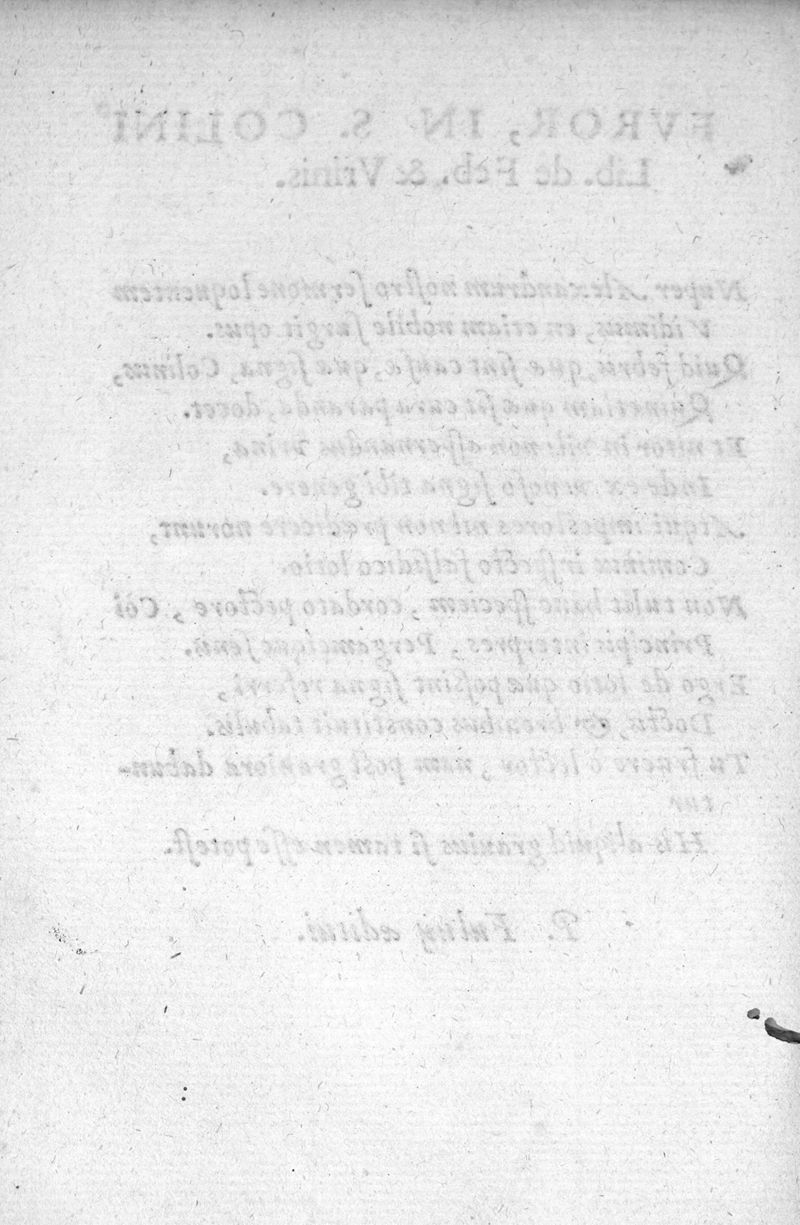 FVROR, IN S. COLINI
Lib. de Feb. & Vrinis.
Nuper Alexandrum nostro sermone loquentem
Vidimus, en etiam nobile surgit opus.
Quid febris, quæ sint causæ, quæ signa, Colinus,
Quinetiam quæ sit cura paranda, docet.
Et nitor in non aspernandus vrina,
Index signa tibi genere.
Atqui impostores nil non prædicere norunt,
Cominus inspecto falsidico lotio.
Non tulit hanc speciem, cordato pectore, Côi
Principis interpres, Pergameique senis.
Ergo de lotio quæ possint signa referri,
Doctis, & breuibus constituit tabulis.
Tu fruere ô lector, nam post grauiora dabun-
tur
His aliquid grauius si tamen esse potest.
P. Fuluij ædimi.